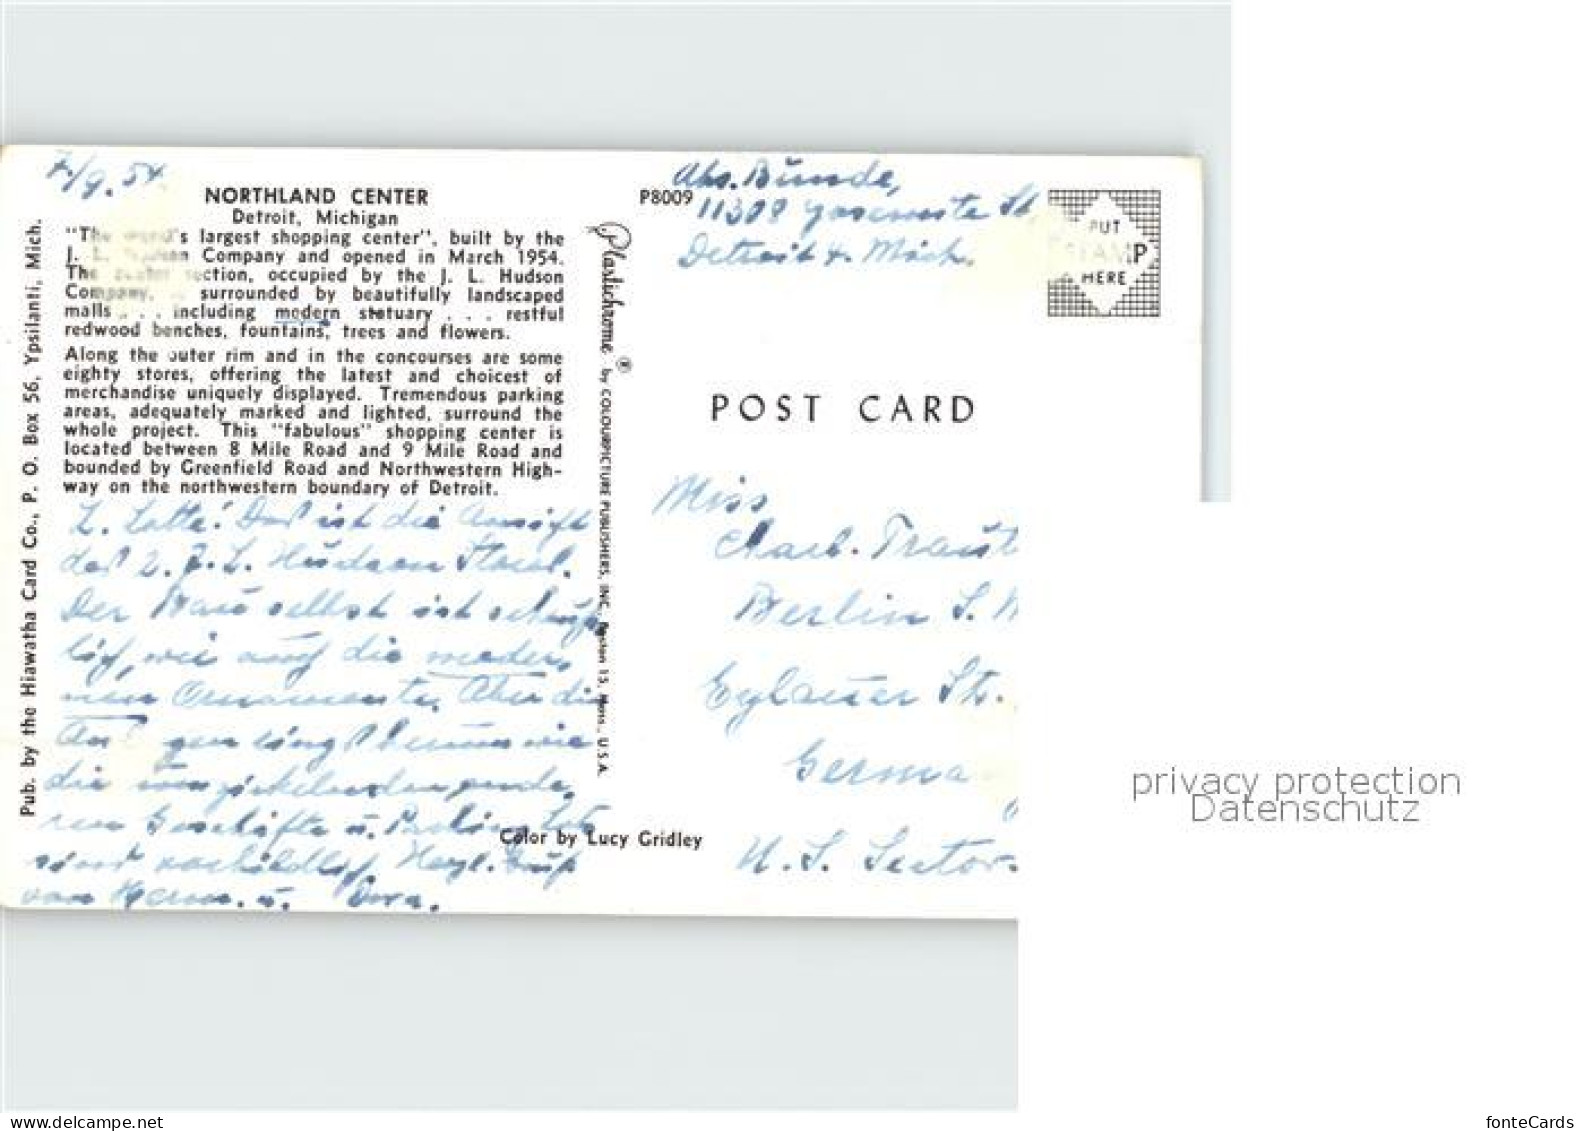 7/9. 54.
NORTHLAND CENTER
Detroit, Michigan
"The world's largest shopping center", built by the
J. L. Hudson Company and opened in March 1954.
The center section, occupied by the J. L. Hudson
Company, surrounded by beautifully landscaped
malls . . . including modern statuary . . . restful
redwood benches, fountains, trees and flowers.
Along the outer rim and in the concourses are some
eighty stores, offering the latest and choicest of
merchandise uniquely displayed. Tremendous parking
areas, adequately marked and lighted, surround the
whole project. This "fabulous" shopping center is
located between 8 Mile Road and 9 Mile Road and
bounded by Greenfield Road and Northwestern High-
way on the northwestern boundary of Detroit.
L. Lotte! Das ist die Ansicht
des 2. J. L. Hudson Stores.
Der Bau selbst ist scheuß-
lich, wie auch die moder-
nen Ornamente. Aber die
die
Geschäfte u. Parking Lots
sind vorbildlich. Herzl. Gruß
von Herm. u. Dora.
Pub. by the Hiawatha Card Co., P. O. Box 56, Ypsilanti, Mich.
Plastichrome ® by COLOURPICTURE PUBLISHERS, INC., Boston 15, Mass., U.S.A.
Color by Lucy Gridley
P8009
Abs. Bunde,
Yosemite St
Detroit 4. Mich.
PUT
STAMP
HERE
POST CARD
Miss
Charl. Traut
Berlin S.
Eylauer Str.
Germa
U. S. Sector.
privacy protection
Datenschutz
www.delcampe.net
fonteCards